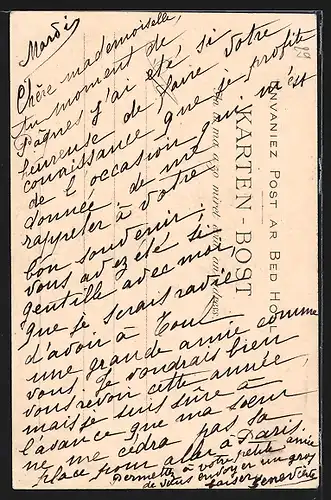 Mardi
Chère mademoiselle,
au moment de
Pâques j'ai été, si
heureuse de faire votre
connaissance que je profite
de l'occasion qui m'est
donnée de me
rappeler à votre
bon souvenir;
vous avez été si
gentille avec moi,
que je serais ravie
d'avoir à Tours
une grande amie comme
vous. Je voudrais bien
vous revoir cette année
mais je suis sûre à
l'avance que ma sœur
ne me cédra pas sa
place pour aller à Paris.
Permettez à votre petite amie
de vous envoyer un gros
baiser. Geneviève
UNVANIEZ POST AR BED HOLL
KARTEN-BOST